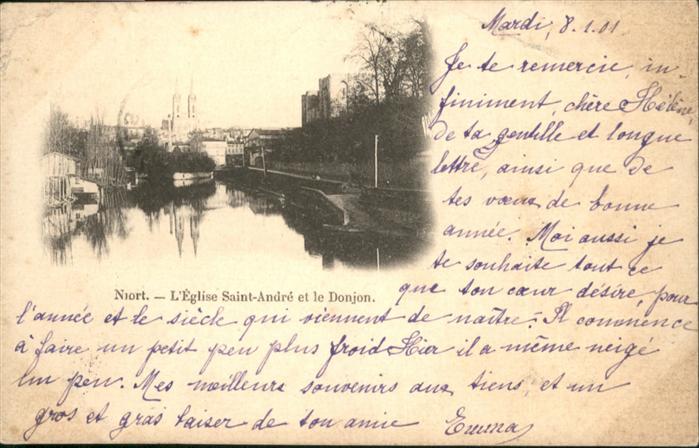 Mardi, 8.1.01
Je te remercie, in-
finiment, chère Hélène
de ta gentille et longue
lettre, ainsi que de
tes vœux de bonne
année. Moi aussi je
te souhaite tout ce
que ton cœur désire, pour
l'année et le siècle qui viennent de naître. Il commence
à faire un petit peu plus froid Hier il a même neigé
un peu. Mes meilleurs souvenirs aux tiens, et un
gros et gras baiser de ton amie Emma
Niort. — L'Église Saint-André et le Donjon.